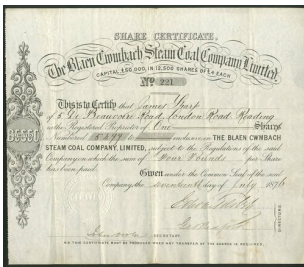 SHARE CERTIFICATE.
The Blaen Cwmbach Steam Coal Company, Limited.
CAPITAL £50,000, IN 12,500 SHARES OF £4 EACH
No 221
This is to Certify that James Sharp
of 5 De Beauvoir Road, London Road Reading
is the Registered Proprietor of One Shares
numbered 5899 to inclusive in THE BLAEN CWMBACH
STEAM COAL COMPANY, LIMITED, subject to the Regulations of the said
Company on which the sum of Four Pounds per Share
has been paid.
Given under the Common Seal of the said
Company the seventeenth day of July 1876
DIRECTORS.
SECRETARY
N.B. THIS CERTIFICATE MUST BE PRODUCED WHEN ANY TRANSFER OF THE SHARES IS REQUIRED.